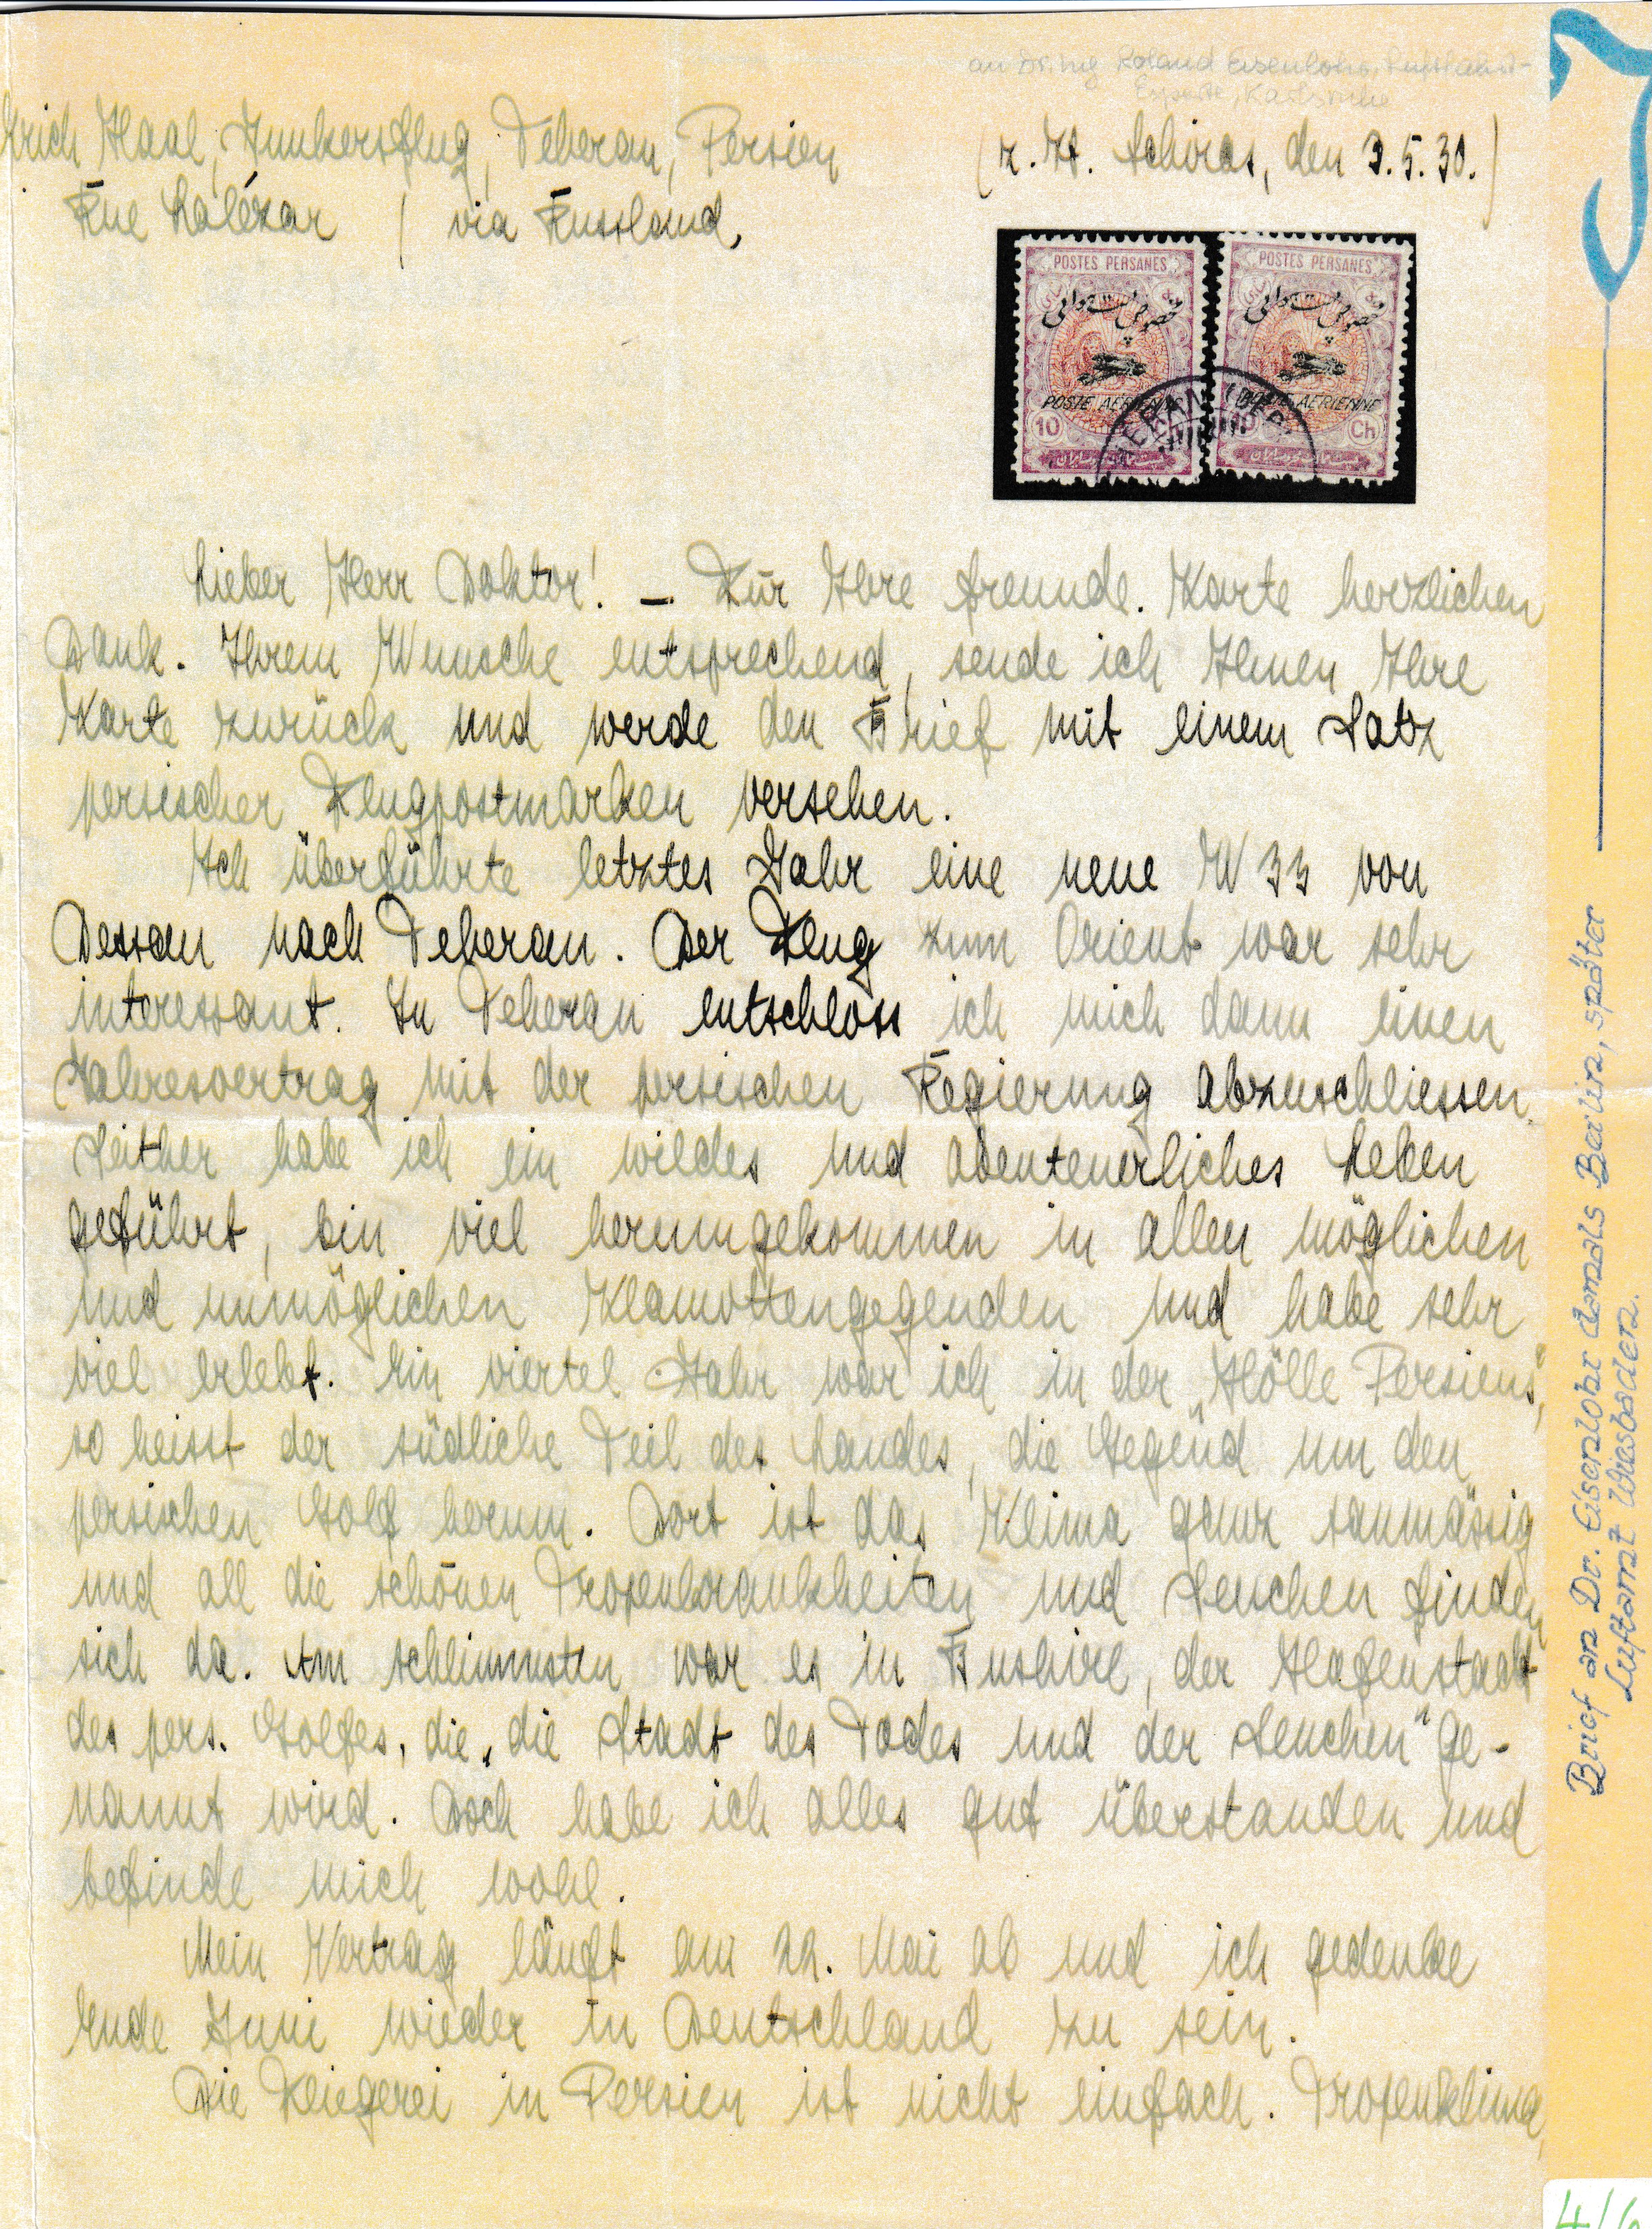 an Dr. Ing Roland Eisenlohr, Luftfahrt-
Experte, Karlsruhe
Erich Haal, Junkersflug, Teheran, Persien
(z. Zt. Schiras, den 3.5.30.)
Rue Lalézar / via Russland.
POSTES PERSANES
POSTES PERSANES
POSTE AERIENNE
POSTE AERIENNE
10
Ch
Lieber Herr Doktor! – Für Ihre freunde. Karte herzlichen
Dank. Ihrem Wunsche entsprechend, sende ich Ihnen Ihre
Karte zurück und werde den Brief mit einem Satz
persischer Flugpostmarken versehen.
Ich überführte letztes Jahr eine neue W 33 von
Dessau nach Teheran. Der Flug zum Orient war sehr
interessant. In Teheran entschloss ich mich dann einen
Jahresvertrag mit der persischen Regierung abzuschliessen.
Seither habe ich ein wildes und abenteuerliches Leben
geführt, bin viel herumgekommen in allen möglichen
und unmöglichen Klamottengegenden und habe sehr
viel erlebt. Ein viertel Jahr war ich in der „Hölle Persiens“,
so heisst der südliche Teil des Landes, die Gegend um den
persischen Golf herum. Dort ist das Klima ganz saumässig
und all die schönen Tropenkrankheiten und Seuchen finden
sich da. Am schlimmsten war es in Bushire, der Hafenstadt
des pers. Golfes, die „die Stadt des Todes und der Seuchen“ ge-
nannt wird. Doch habe ich alles gut überstanden und
befinde mich wohl.
Mein Vertrag läuft am 22. Mai ab und ich gedenke
Ende Juni wieder in Deutschland zu sein.
Die Fliegerei in Persien ist nicht einfach. Tropenklima,
Brief an Dr. Eisenlohr damals Berlin, später
Luftamt Wiesbaden.